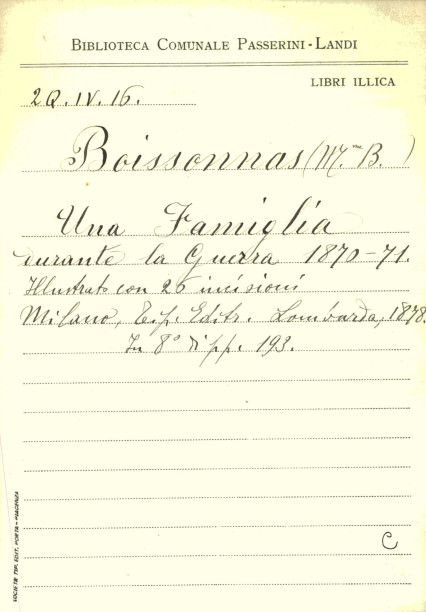 BIBLIOTECA COMUNALE PASSERINI-LANDI
LIBRI ILLICA
2Q.IV.16.
Boissonnas (M.me B. )
Una Famiglia
durante la Guerra 1870-71.
Illustrato con 26 incisioni
Milano, Tip. Editr. Lombarda, 1878.
In 8° di pp. 193.
C
SOCIETÀ TIP. EDIT. PORTA - PIACENZA